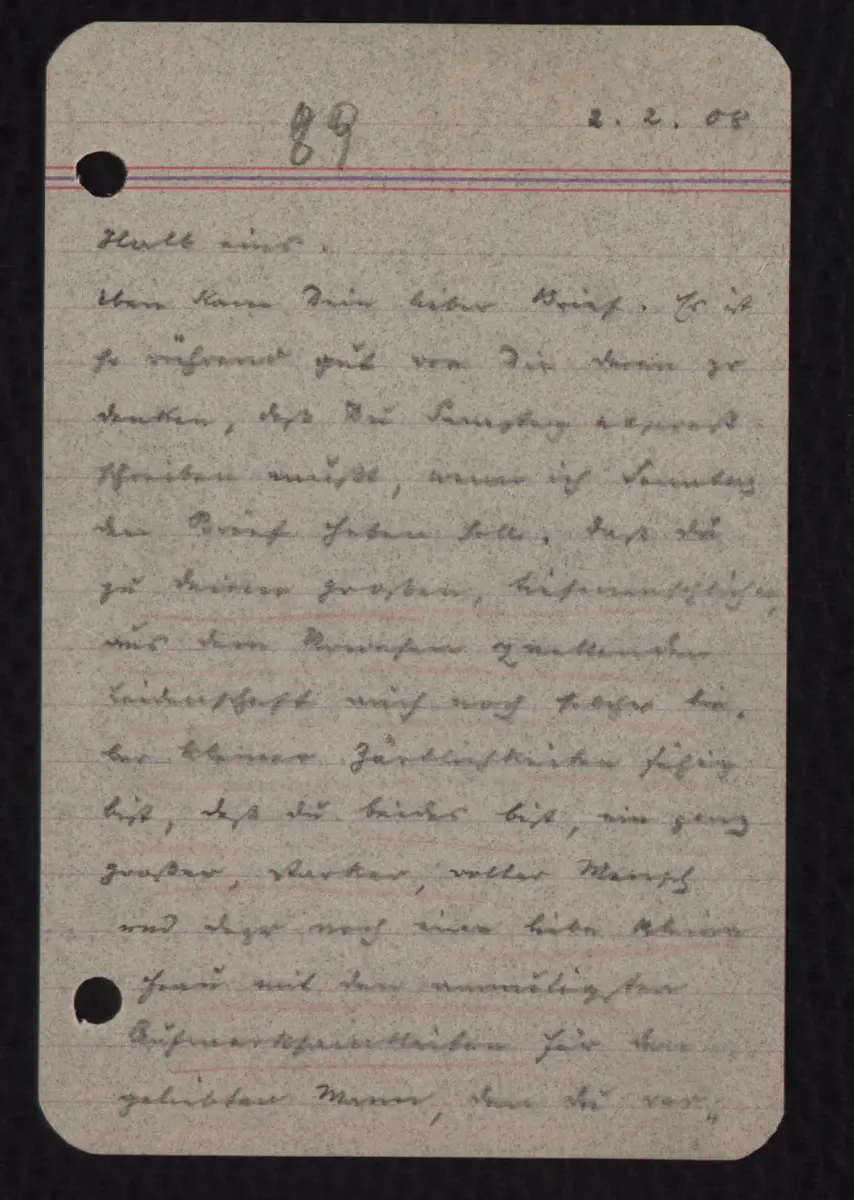 89
2. 2. 08
Halb eins.
Eben kam Dein lieber Brief. Es ist
so rührend gut von Dir daran zu
denken, daß Du Samstag expreß
schreiben mußt, wenn ich Sonntag
den Brief haben soll. Daß du
zu deiner großen, tiefmenschlichen,
aus dem quellenden
Leidenschaft auch noch solcher lie-
ber kleiner Zärtlichkeiten fähig
bist, daß du beides bist, ein ganz
großer, starker, voller Mensch
und dazu noch eine liebe kleine
Frau mit den anmutigsten
Aufmerksamkeiten für den
geliebten Mann, den du ver-